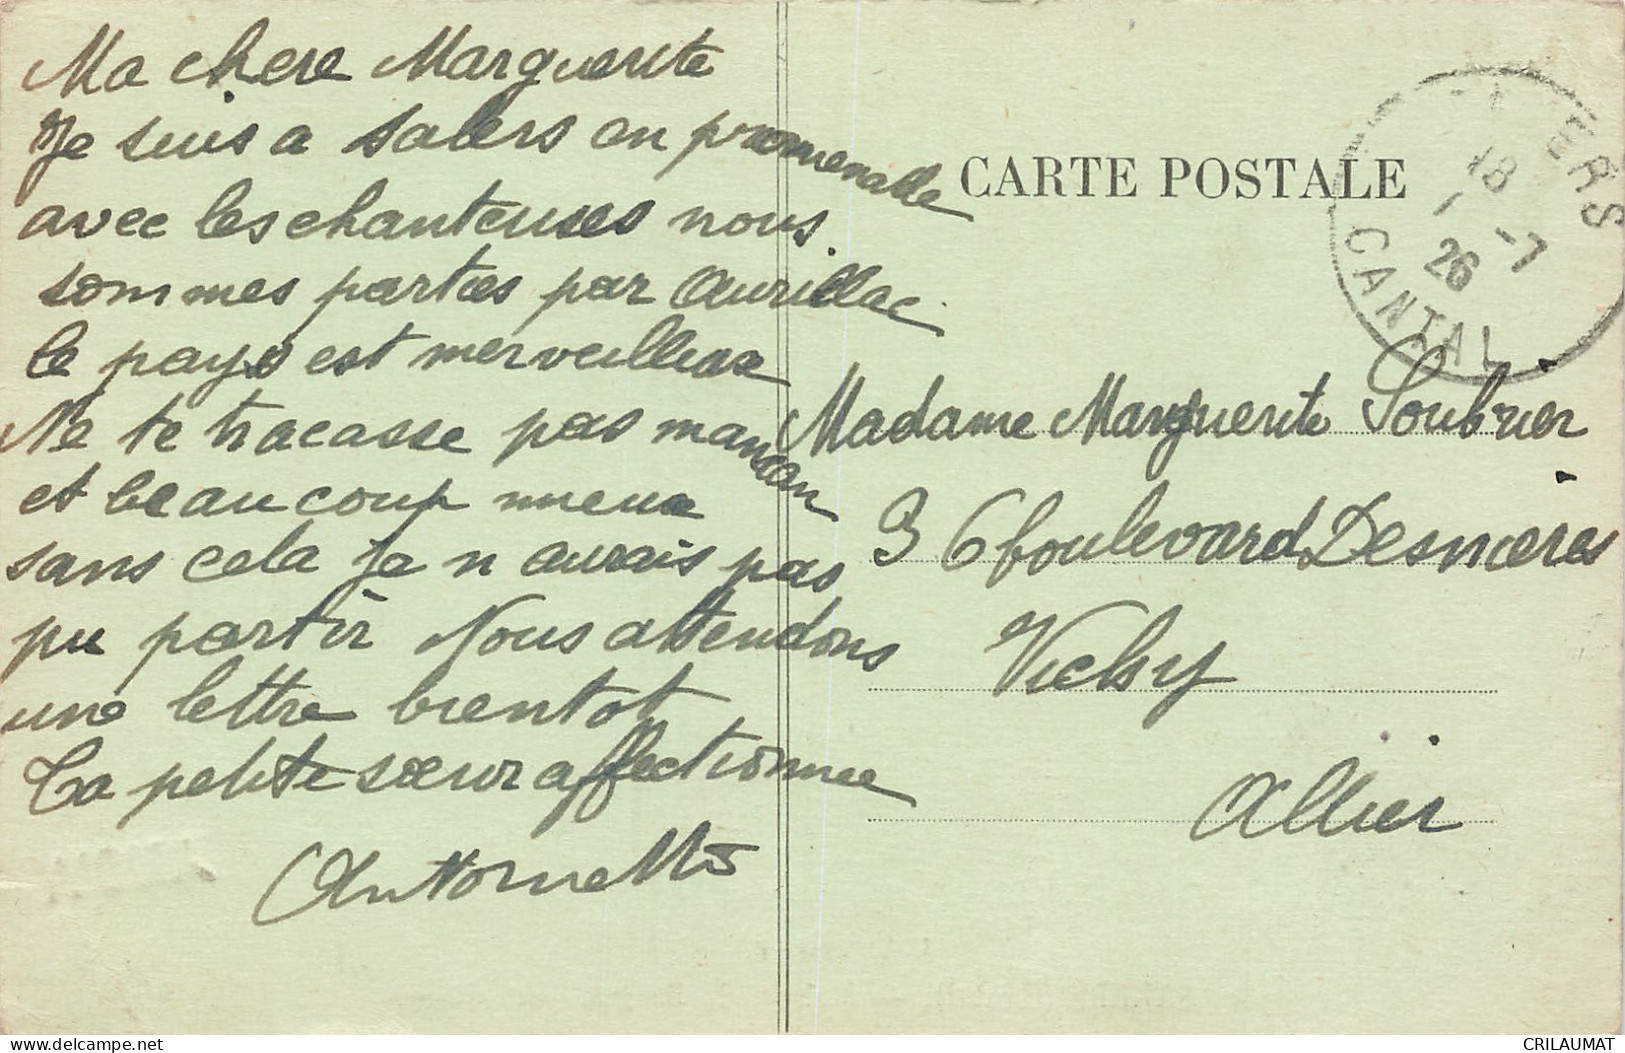 Ma chere Marguerite
Je suis a Salers en promenade
avec les chanteuses nous
sommes parties par Aurillac
le pays est merveilleux
Ne te tracasse pas maman
est beaucoup mieux
sans cela je n aurais pas
pu partir Nous attendons
une lettre bientot
Ta petite sœur affectionnee
Antoinette
CARTE POSTALE
ERS
18
-7
26
CANTAL
Madame Marguerite Soubrier
36 boulevard Desnieres
Vichy
Allier
www.delcampe.net
CRILAUMAT